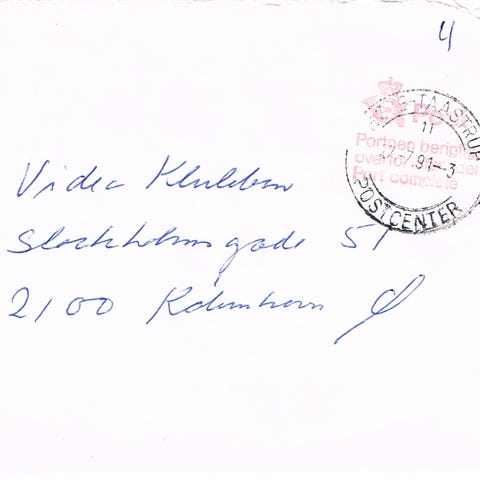 4
TAASTRUP
11
Portoen berigtiget
overfor
22.7.91-3
Port complete
POSTCENTER
Video Klubben
Stockholmsgade 51
2100 København Ø